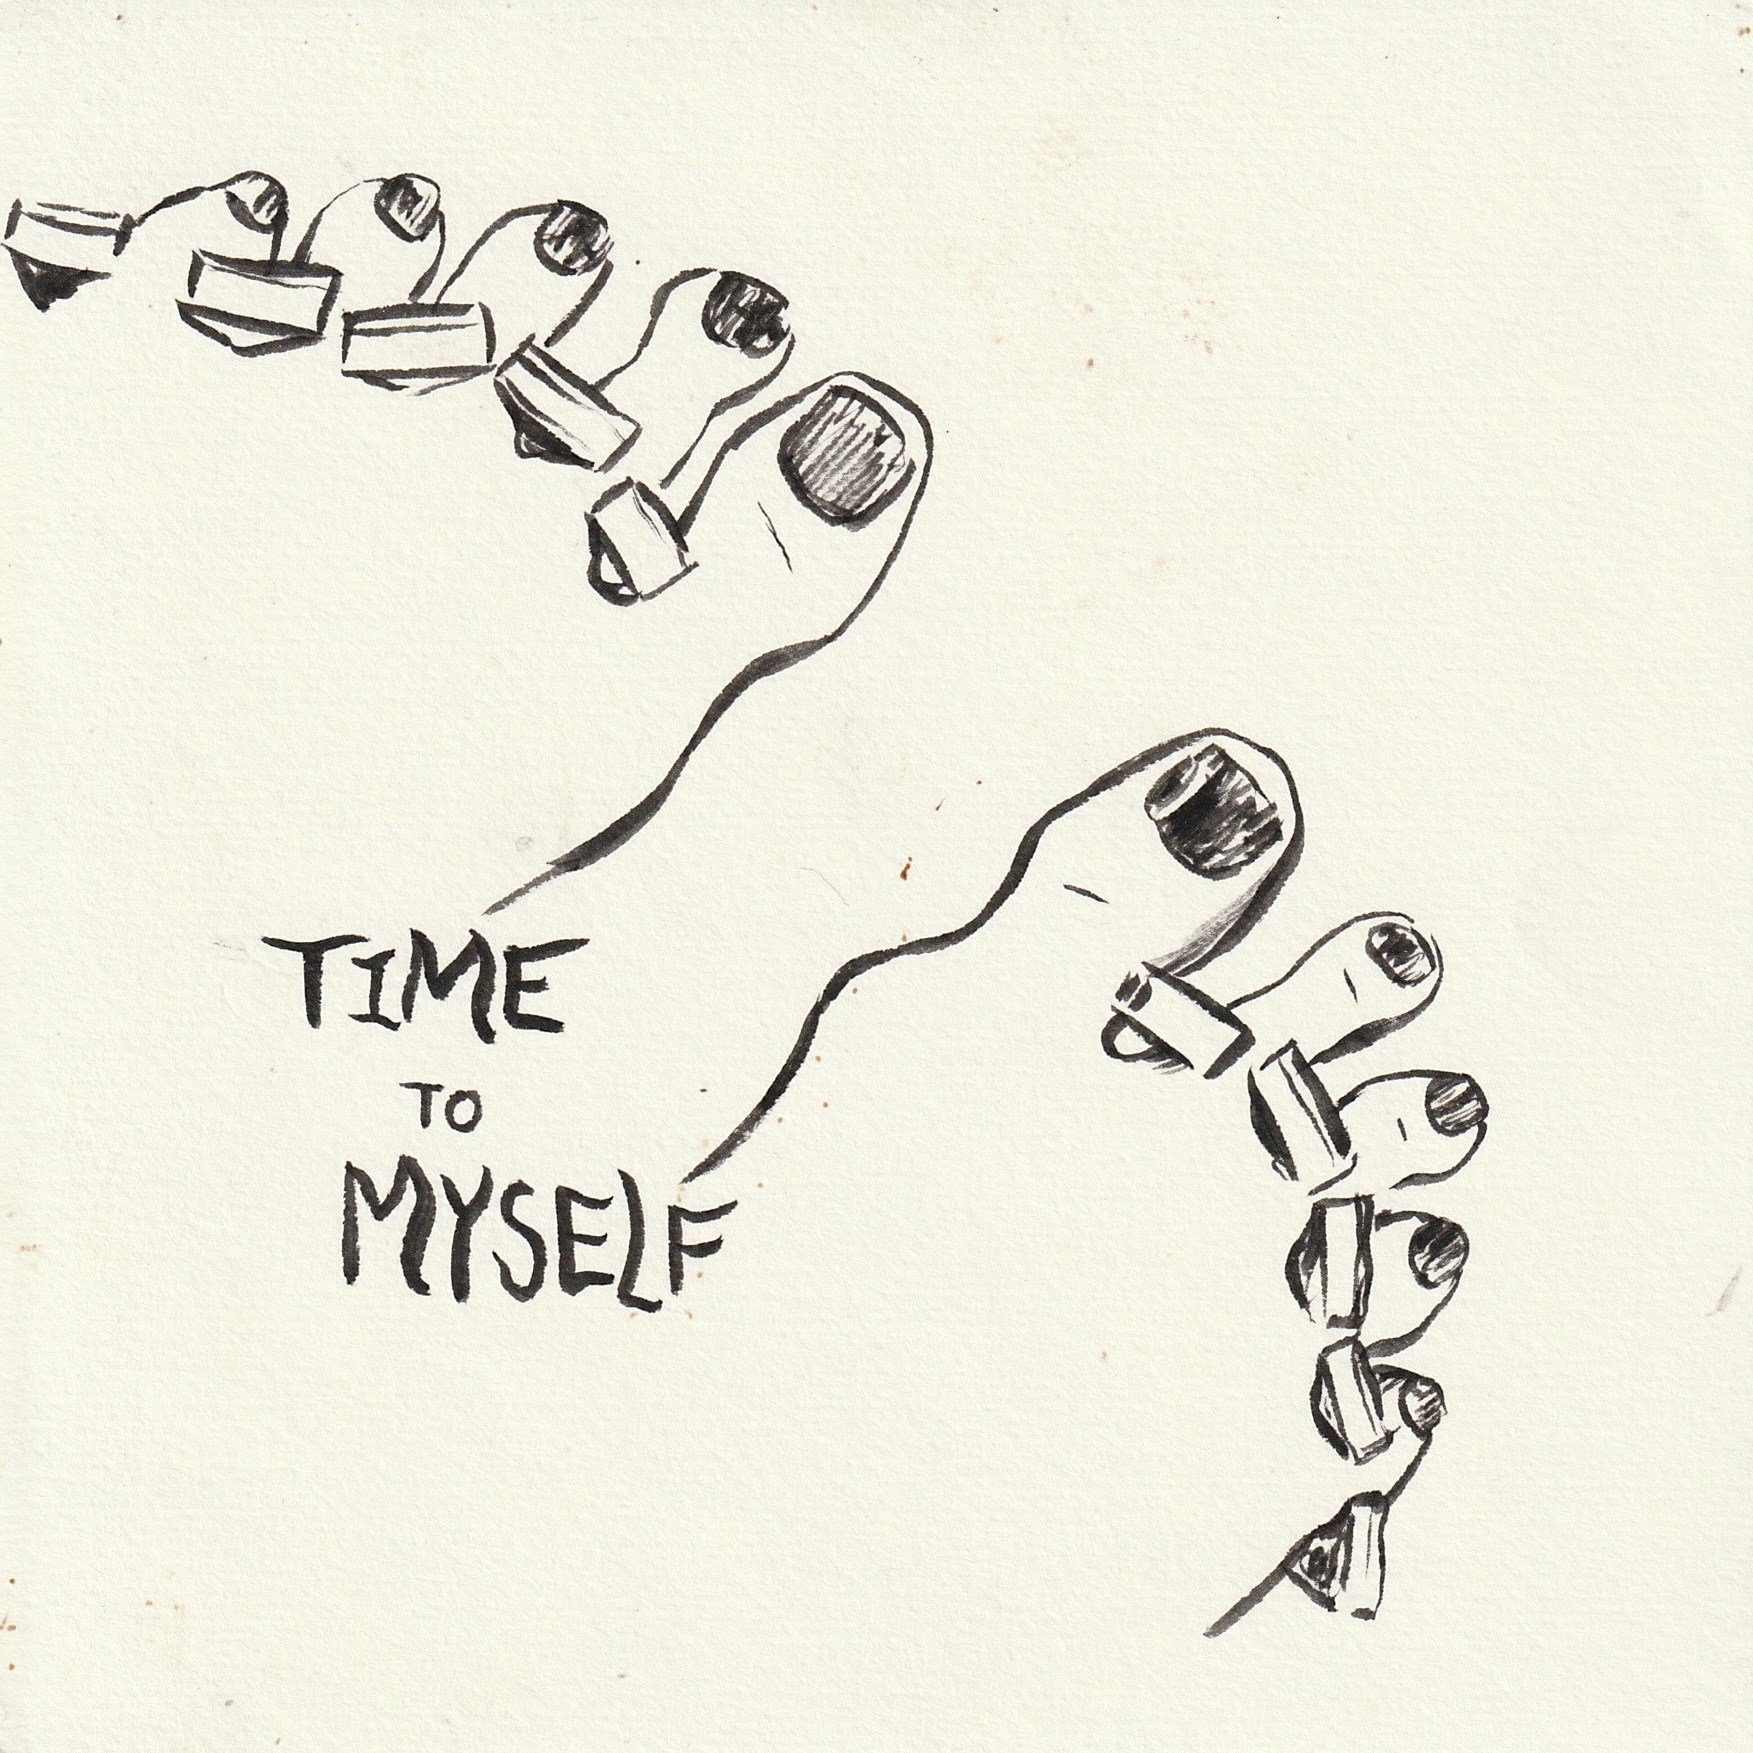 TIME
TO
MYSELF